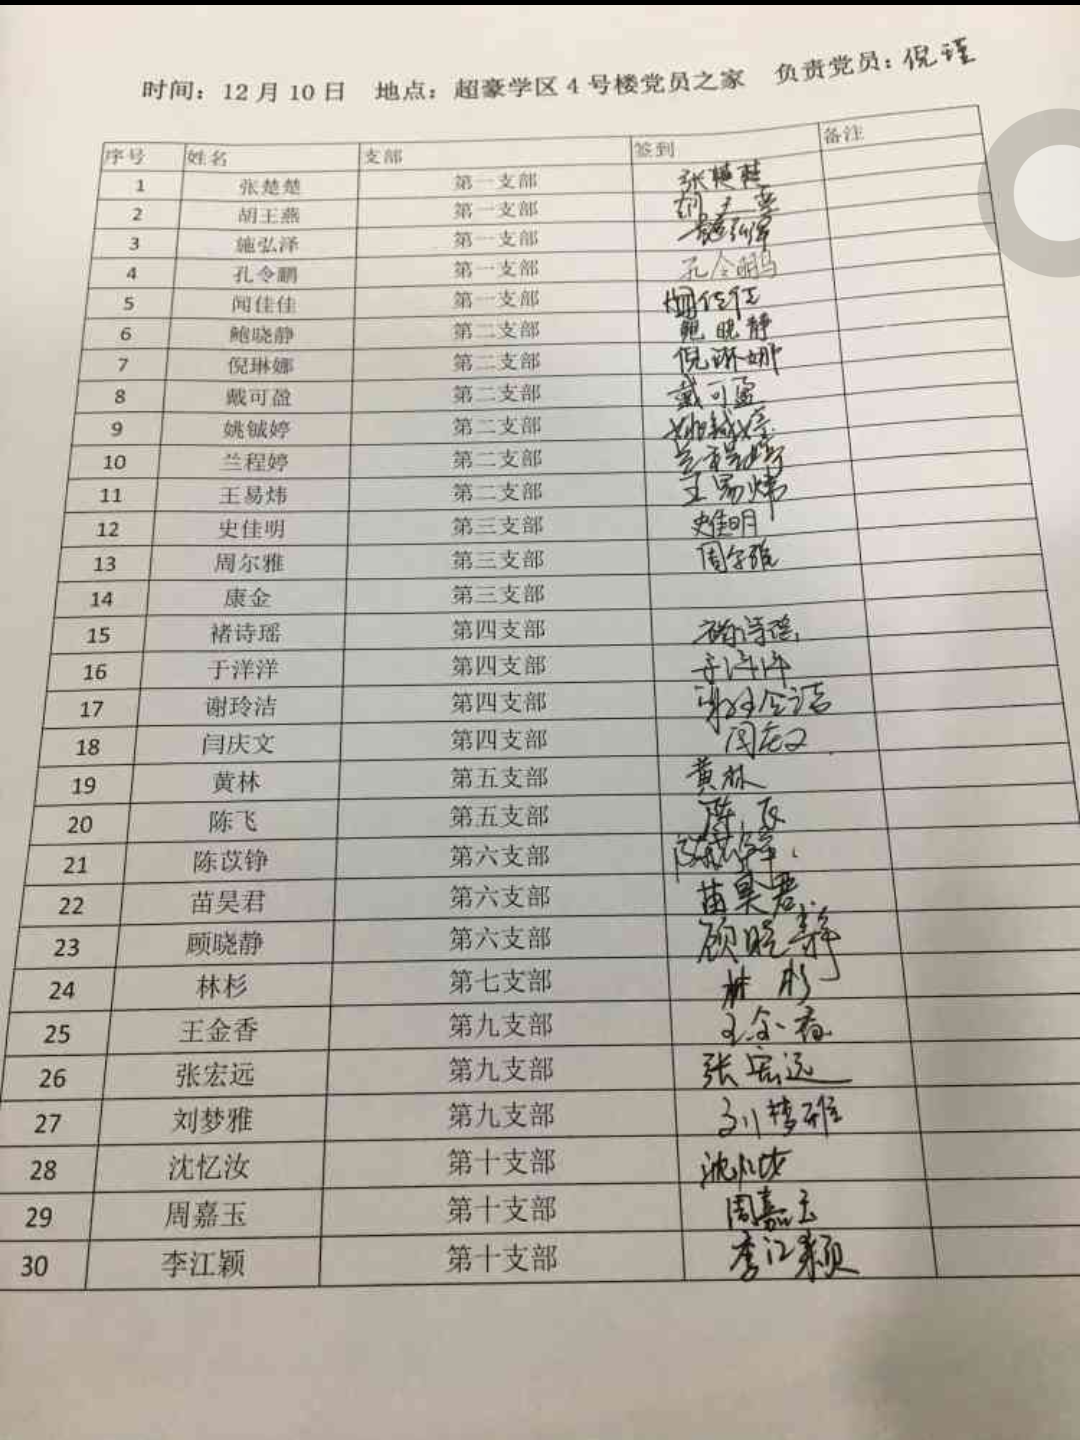 时间：12月10日 地点：超豪学区4号楼党员之家 负责党员：倪瑾
序号 姓名 支部 签到 备注
1 张楚楚 第一支部 张楚楚
2 胡王燕 第一支部
3 施弘泽 第一支部 施弘泽
4 孔令鹏 第一支部 孔令鹏
5 闻佳佳 第一支部 闻佳佳
6 鲍晓静 第二支部 鲍晓静
7 倪琳娜 第二支部 倪琳娜
8 戴可盈 第二支部 戴可盈
9 姚铖婷 第二支部 姚铖婷
10 兰程婷 第二支部 兰程婷
11 王易炜 第二支部 王易炜
12 史佳明 第三支部 史佳明
13 周尔雅 第三支部 周尔雅
14 康金 第三支部
15 褚诗瑶 第四支部 褚诗瑶
16 于洋洋 第四支部 于洋洋
17 谢玲洁 第四支部 谢玲洁
18 闫庆文 第四支部 闫庆文
19 黄林 第五支部 黄林
20 陈飞 第五支部 陈飞
21 陈苡铮 第六支部 陈苡铮
22 苗昊君 第六支部 苗昊君
23 顾晓静 第六支部 顾晓静
24 林杉 第七支部 林杉
25 王金香 第九支部 王金香
26 张宏远 第九支部 张宏远
27 刘梦雅 第九支部 刘梦雅
28 沈忆汝 第十支部 沈忆汝
29 周嘉玉 第十支部 周嘉玉
30 李江颖 第十支部 李江颖